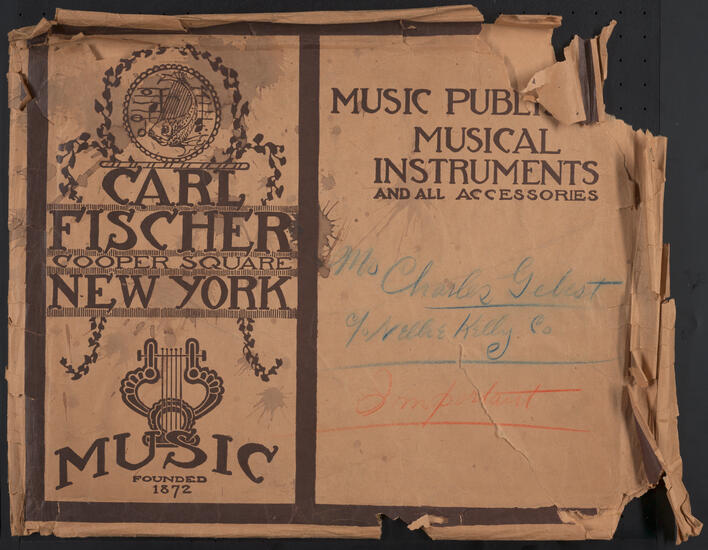 CARL
FISCHER
COOPER SQUARE
NEW YORK
MUSIC
FOUNDED
1872
MUSIC PUBL
MUSICAL
INSTRUMENTS
AND ALL ACCESSORIES
Mr Charles Gebest
c/o Nellie Kelly Co
Important